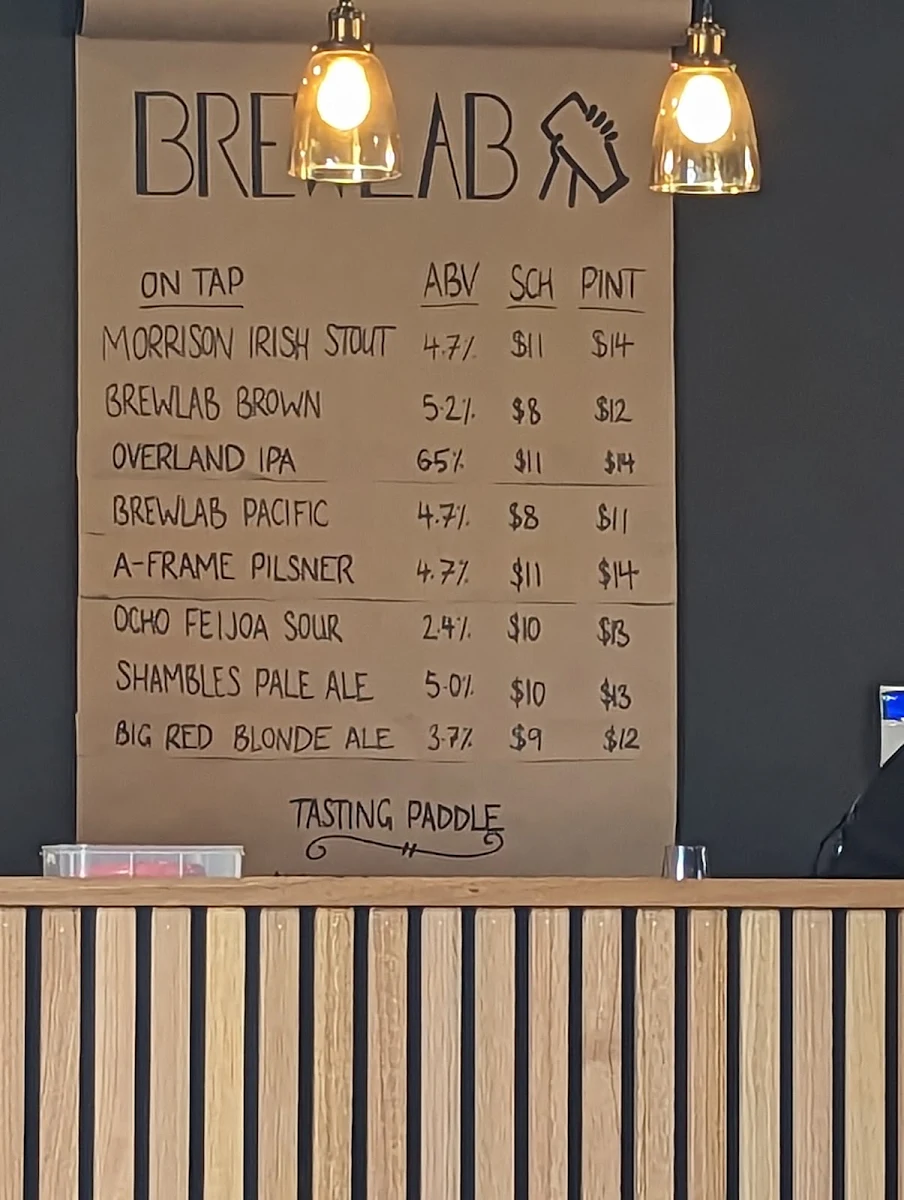 BREWLAB
ON TAP ABV SCH PINT
MORRISON IRISH STOUT 4.7% $11 $14
BREWLAB BROWN 5.2% $8 $12
OVERLAND IPA 6.5% $11 $14
BREWLAB PACIFIC 4.7% $8 $11
A-FRAME PILSNER 4.7% $11 $14
OCHO FEIJOA SOUR 2.4% $10 $13
SHAMBLES PALE ALE 5.0% $10 $13
BIG RED BLONDE ALE 3.7% $9 $12
TASTING PADDLE